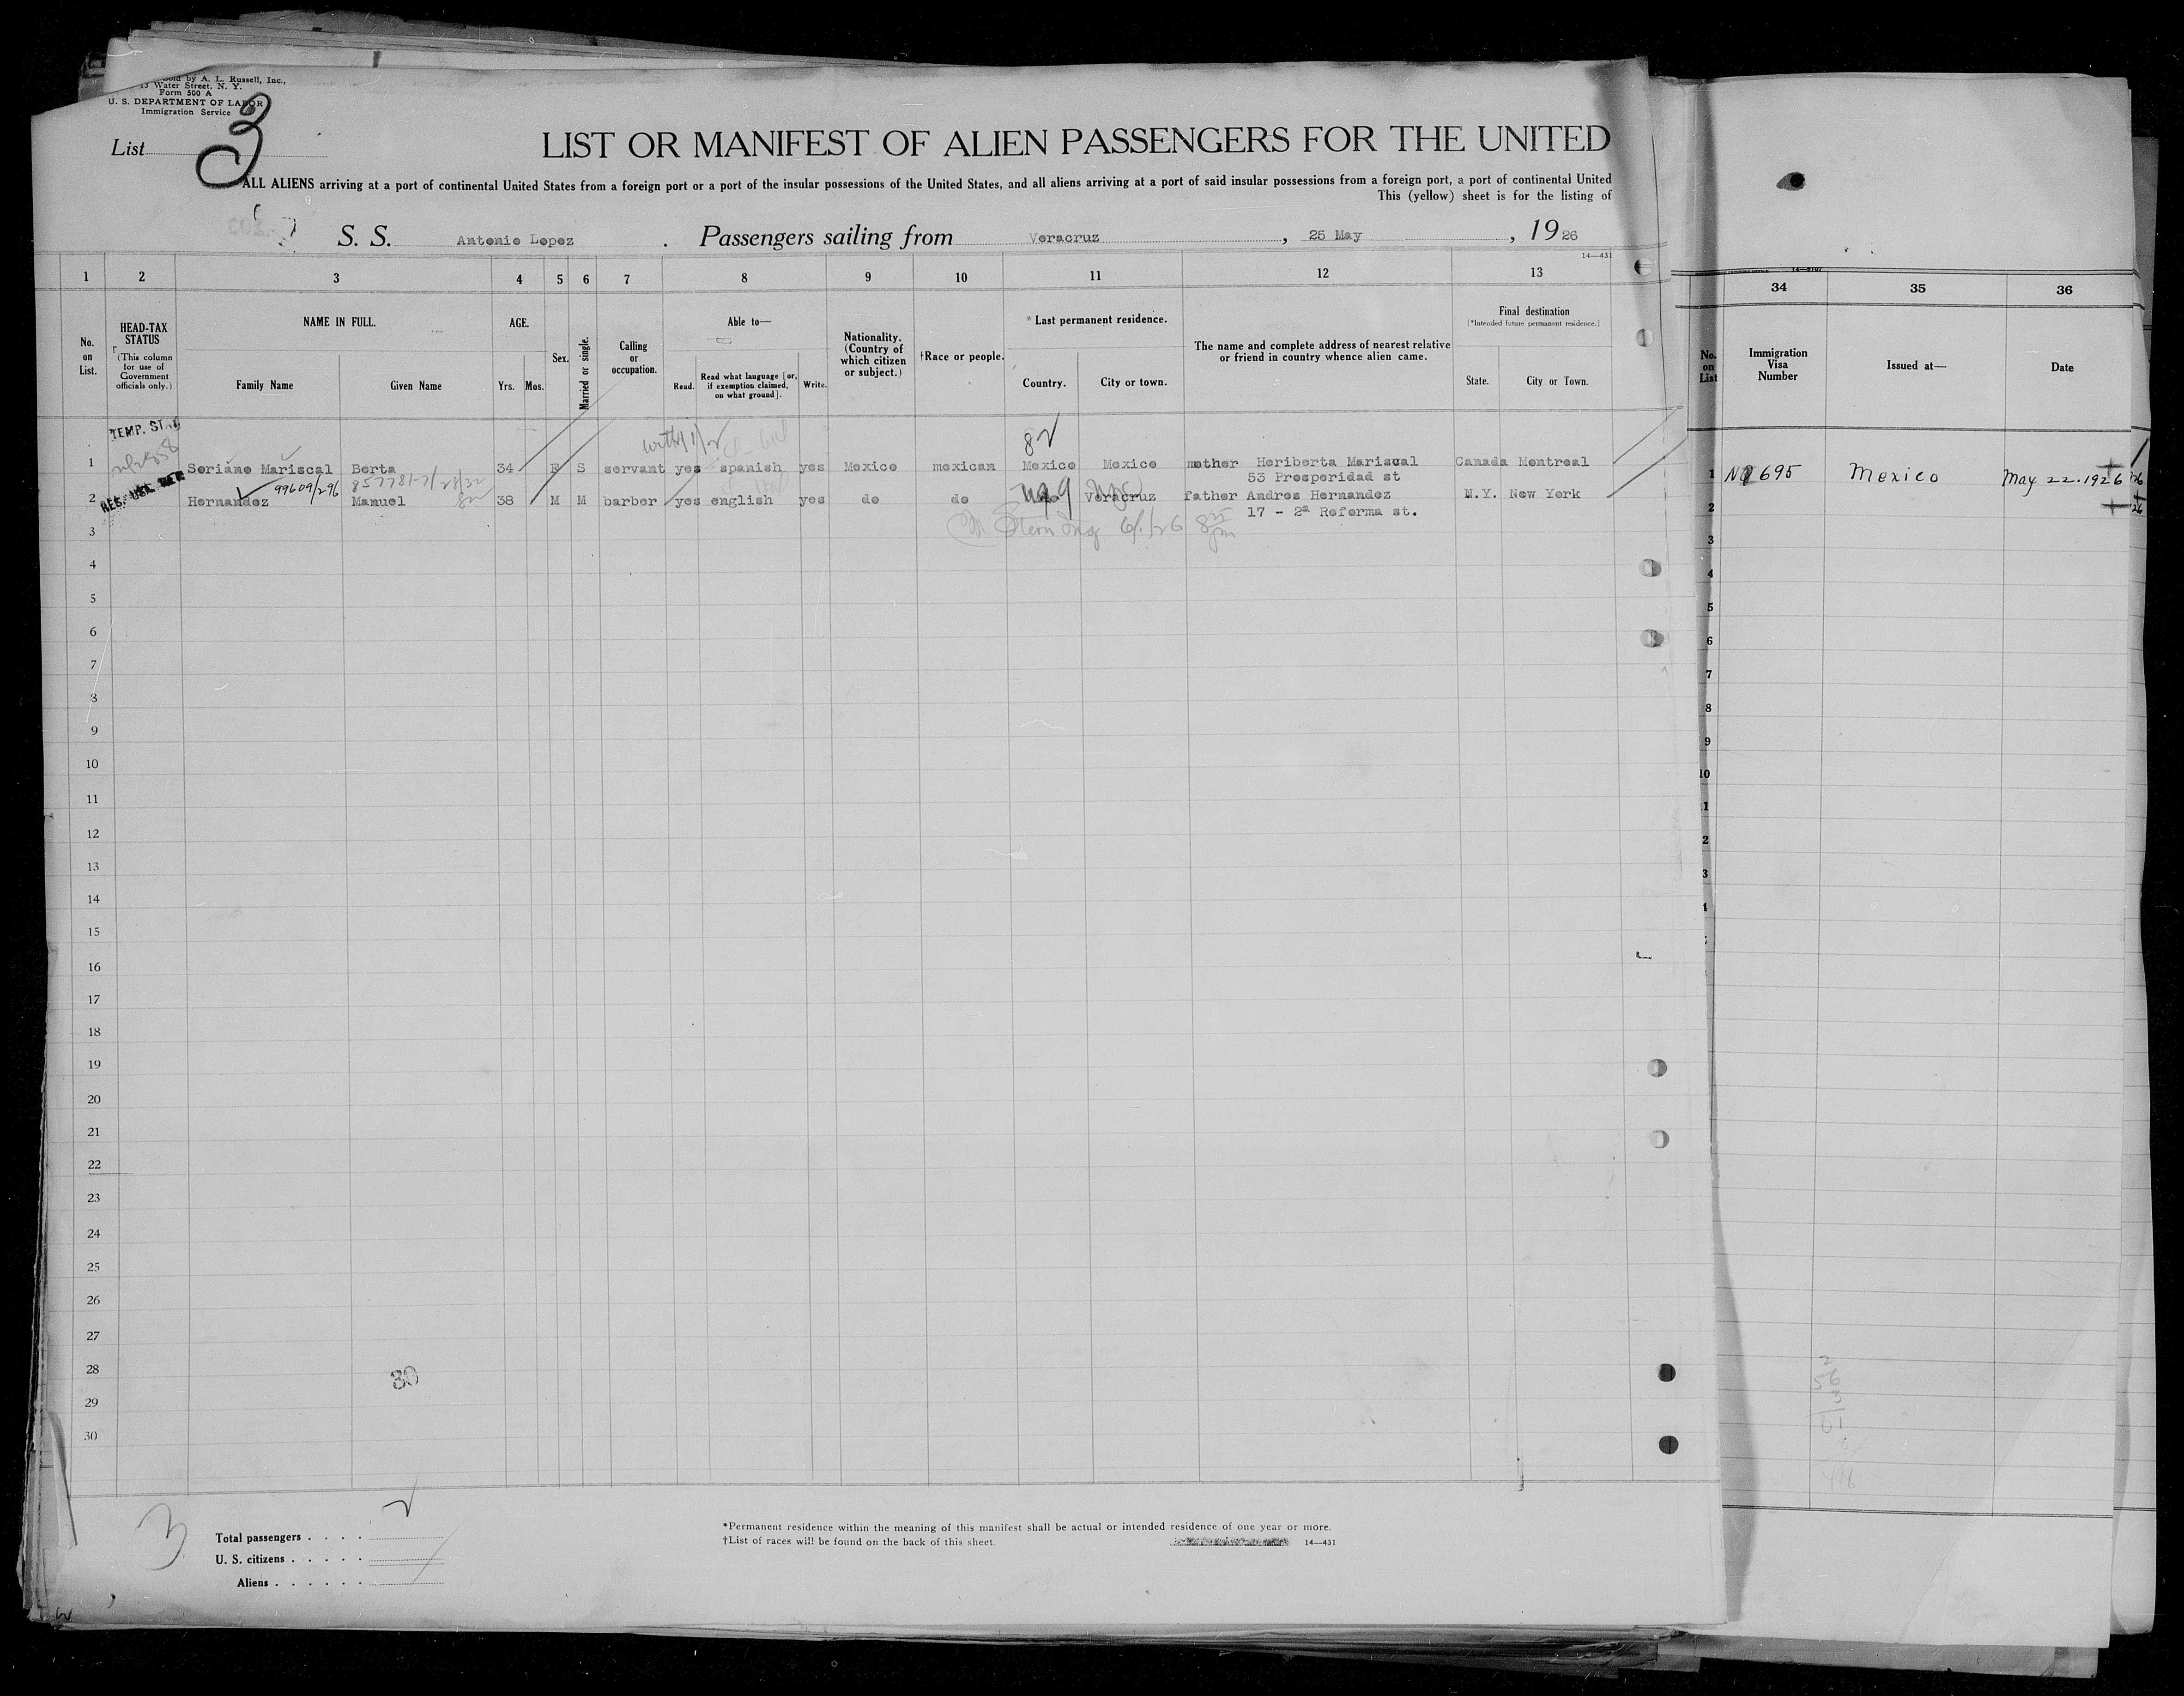 Sold by A. L. Russell, Inc.,
Water Street, N. Y.
Form 500 A
U. S. DEPARTMENT OF LABOR
Immigration Service
List 3
LIST OR MANIFEST OF ALIEN PASSENGERS FOR THE UNITED
ALL ALIENS arriving at a port of continental United States from a foreign port or a port of the insular possessions of the United States, and all aliens arriving at a port of said insular possessions from a foreign port, a port of continental United
This (yellow) sheet is for the listing of
S. S. Antonio Lopez . Passengers sailing from Veracruz , 25 May , 1926
14—431
1 2 3 4 5 6 7 8 9 10 11 12 13
34 35 36
No. on List.
HEAD-TAX STATUS
(This column for use of Government officials only.)
NAME IN FULL.
Family Name
Given Name
AGE.
Yrs. Mos.
Sex.
Married or single.
Calling or occupation.
Able to—
Read.
Read what language [or, if exemption claimed, on what ground].
Write.
Nationality. (Country of which citizen or subject.)
†Race or people.
*Last permanent residence.
Country.
City or town.
The name and complete address of nearest relative or friend in country whence alien came.
Final destination
[*Intended future permanent residence.]
State.
City or Town.
No. on List
Immigration Visa Number
Issued at—
Date
TEMP.
82
1 Soriano Mariscal Berta 34 F S servant yes spanish yes Mexico mexican Mexico Mexico mother Heriberta Mariscal Canada Montreal
53 Prosperidad st
1 No 695 Mexico May 22.1926
99609/296
2 Hernandez Manuel 38 M M barber yes english yes do do Veracruz father Andres Hernandez N.Y. New York
17 - 2ª Reforma st.
2
3
4
5
6
7
8
9
10
11
12
13
14
15
16
17
18
19
20
21
22
23
24
25
26
27
28
29
30
3
4
5
6
7
8
9
10
30
3
Total passengers . . . .
U. S. citizens . . . . .
Aliens . . . . . .
*Permanent residence within the meaning of this manifest shall be actual or intended residence of one year or more.
†List of races will be found on the back of this sheet.
14—431